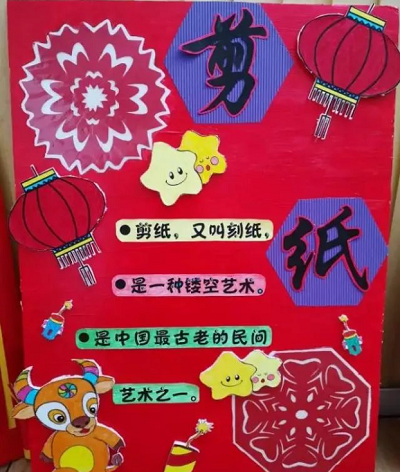 剪
纸
●剪纸，又叫刻纸，
●是一种镂空艺术。
●是中国最古老的民间
艺术之一。